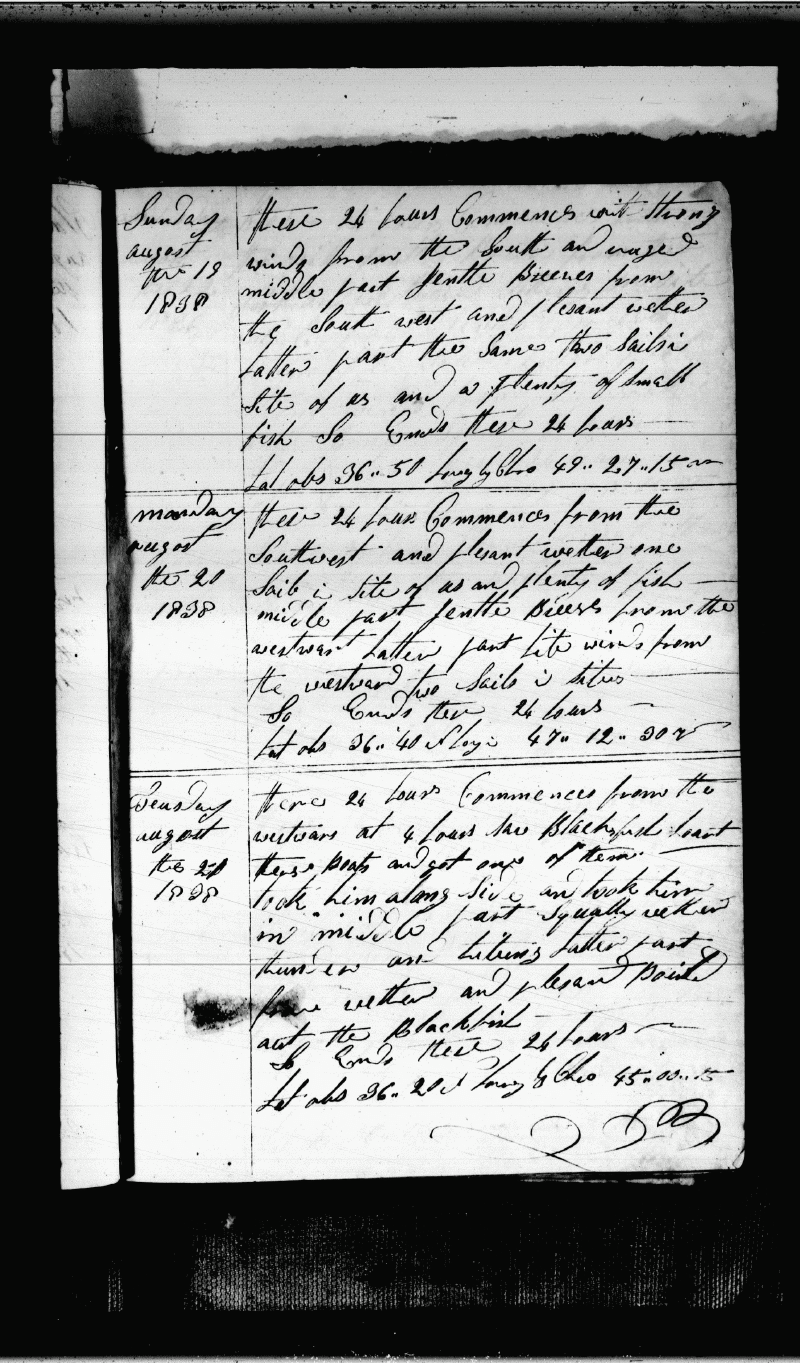 Sunday
august
the 19
1838
these 24 hours Commences wit Strong
winds from the South and ruged
middle part Jentle Breeses from
the South west and plesant wether
Latter part the Same two Sails i
Site of us and a plenty of Small
fish So Ends these 24 hours
Lat obs 36.. 50 Long by Chro 49.. 27..15
monday
augost
the 20
1838
these 24 hours Commences from the
Southwest and plesant wether one
Sails i site of us and plenty of fish
middle part Jentle Breess from the
westwart Latter part Lite winds from
the westward two Sails i sites
So Ends these 24 hours
Lat obs 36..40 N 47.. 12.. 30
Teusday
august
the 21
1838
these 24 hours Commences from the
westwars at 4 hours saw Blackfish
these Boats and got one of them
took him along Side and took him
in middle part Squally wether
thunder and Litning Latter part
wether and plesant Boild
aut the Blackfish
So Ends these 24 hours
Lat obs 36.. 20 N Long by Chro 45..00..15